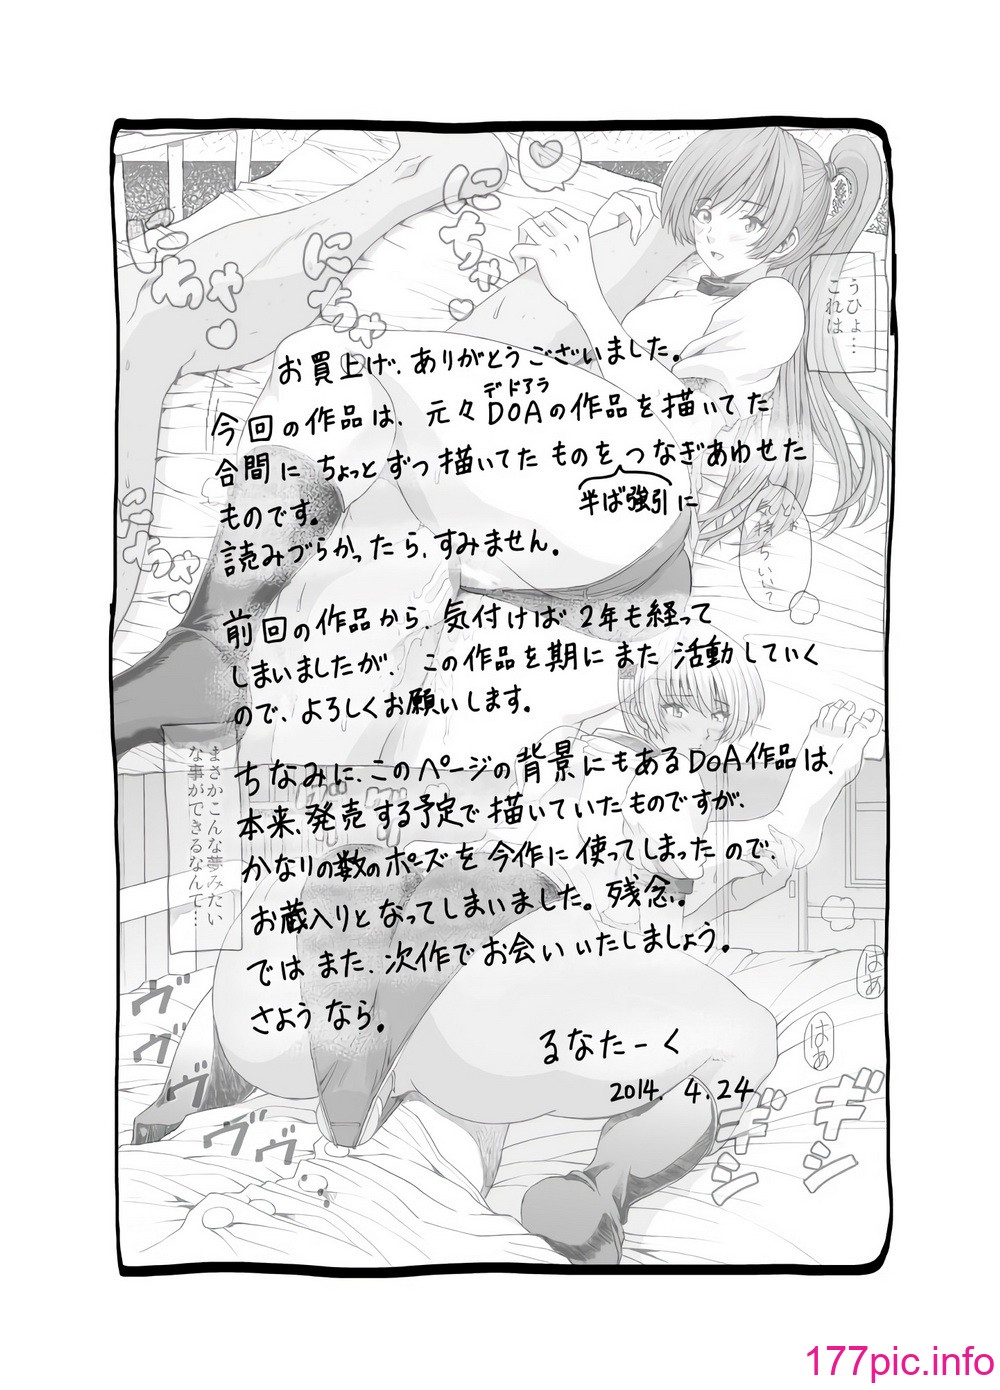 お買上げ、ありがとうございました。
今回の作品は、元々DOAの作品を描いてた
デドアラ
合間にちょっとずつ描いてたものをつなぎあわせた
半ば強引に
ものです。
読みづらかったら、すみません。
前回の作品から、気付けば2年も経って
しまいましたが、この作品を期にまた活動していく
ので、よろしくお願いします。
ちなみに、このページの背景にもあるDoA作品は、
本来、発売する予定で描いていたものですが、
かなりの数のポーズを今作に使ってしまったので、
お蔵入りとなってしまいました。残念。
ではまた、次作でお会いいたしましょう。
さようなら。
るなたーく
2014. 4. 24
うひょ…
これは
気持ちいい?
まさかこんな夢みたい
な事ができるなんて…
にちゃ
にちゃ
にちゃ
にちゃ
はあ
はぁ
ヴヴヴ
ヴヴ
ギシ
ギシ
177pic.info